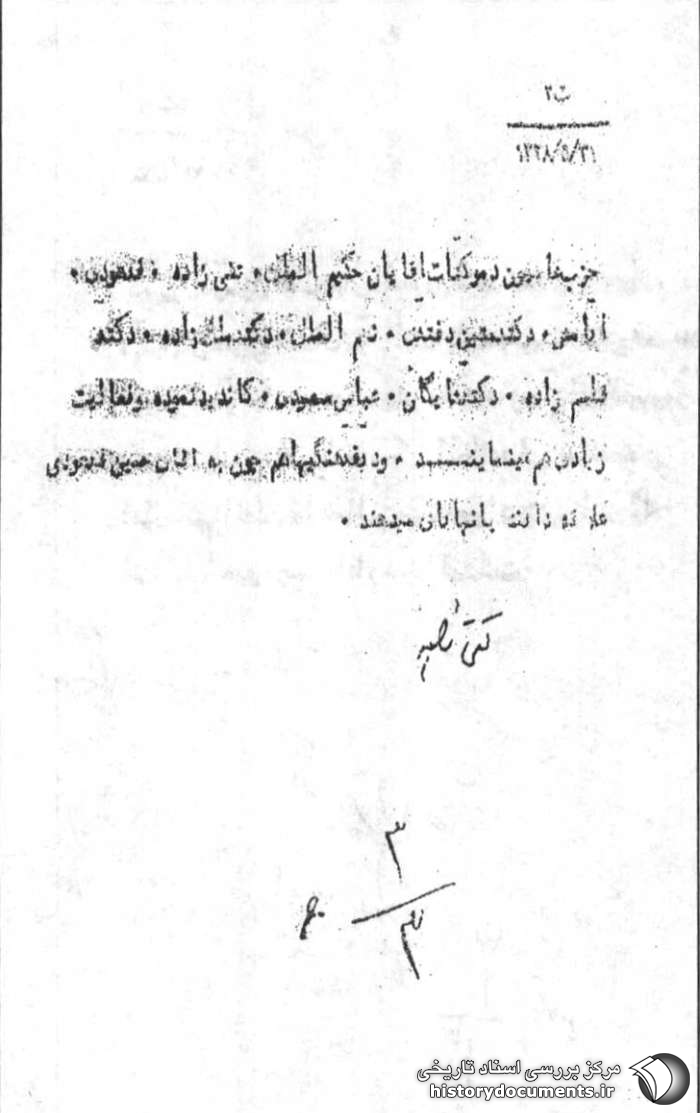 ت۲
۱۳۲۸/۵/۳۱
حزب دموکرات اقایان حکیم الملک، تقی زاده،
دکتر متین دفتری، نجم الملک، دکتر ملک زاده، دکتر
قاسم زاده، دکتر شایگان، عباس مسعودی، کاندید نموده و فعالیت
زیادی هم مینمایند، و فرهنگیها هم چون به اقای
علاقه دارند بانها رای میدهند،
۳
۳
مرکز بررسی اسناد تاریخی
historydocuments.ir